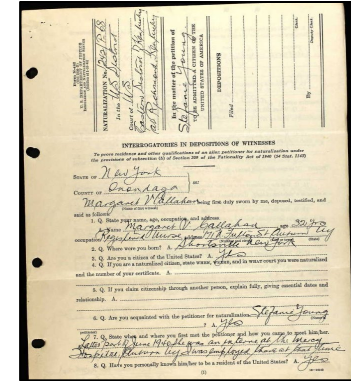 NATURALIZATION No.
In the US District
Court of
Eastern District of Kentucky
at Richmond Kentucky
In the matter of the petition of
Stefanie Young
TO BE ADMITTED A CITIZEN OF THE
UNITED STATES OF AMERICA
DEPOSITIONS
Filed
Clerk.
By
Deputy Clerk.
INTERROGATORIES IN DEPOSITIONS OF WITNESSES
To prove residence and other qualifications of an alien petitioner for naturalization under
the provisions of subsection (b) of Section 309 of the Nationality Act of 1940 (54 Stat. 1142)
STATE OF New York
COUNTY OF Onondaga
Margaret V. Callahan being first duly sworn by me, deposed, testified, and
said as follows:
1. Q. State your name, age, occupation, and address.
A. Name Margaret V. Callahan
occupation Registered Nurse Auburn Ny
2. Q. Where were you born? A. New York
3. Q. Are you a citizen of the United States? A. Yes
4. Q. If you are a naturalized citizen, state when, and in what court you were naturalized
and the number of your certificate. A.
5. Q. If you claim citizenship through another person, explain fully, giving essential dates and
relationship. A.
6. Q. Are you acquainted with the petitioner for naturalization Stefanie Young
? A. Yes
7. Q. State when and where you first met the petitioner and how you came to meet him/her.
Latter part of June She was patient at the Mercy
Hospital Auburn Ny I was employed there at that time
8. Q. Have you personally known him/her to be a resident of the United States? A. Yes
(1)